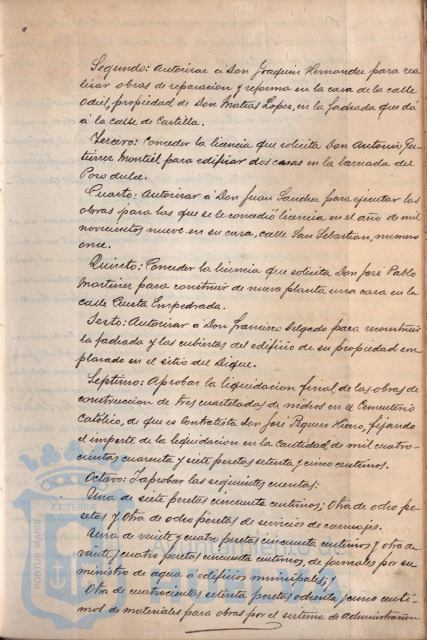 Segundo: Autorizar á Don Joaquin Hernandez para rea
lizar obras de reparacion y reforma en la casa de la calle
Odiel, propiedad de Don Matías Lopez, en la fachada que dá
á la calle de Castilla.
Tercero: Conceder la licencia que solicita Don Antonio Gu-
tierrez Montiel para edificar dos casas en la barriada del
Pozo dulce.
Cuarto: Autorizar á Don Juan Sanchez para ejecutar las
obras para las que se le concedió licencia en el año de mil
novecientos nueve en su casa, calle San Sebastian, numero
once.
Quinto: Conceder la licencia que solicita Don José Pablo
Martinez para construir de nueva planta una casa en la
calle Cuesta Empedrada.
Sexto: Autorizar á Don Francisco Delgado para reconstruir
la fachada y las cubiertas del edificio de su propiedad em
plazado en el sitio del Dique.
Septimo: Aprobar la liquidacion final de las obras de
construccion de tres cuarteladas de nichos en el Cementerio
Católico, de que es contratista Don José Peguero, fijando
el importe de la liquidacion en la cantidad de mil cuatro-
cientos cuarenta y siete pesetas setenta y cinco centimos.
Octavo: Y aprobar las siguientes cuentas:
Una de siete pesetas cincuenta centimos; Otra de ocho pe-
setas y Otra de ocho pesetas de servicios de carruajes.
Una de veinte y cuatro pesetas cincuenta centimos y otra de
veinte y cuatro pesetas cincuenta centimos, de jornales por su
ministro de agua á edificios municipales; y
Otra de cuatrocientas setenta pesetas ochenta y cinco centi-
mos de materiales para obras por el sistema de administracion
PORTUS MARIS ET TERRA